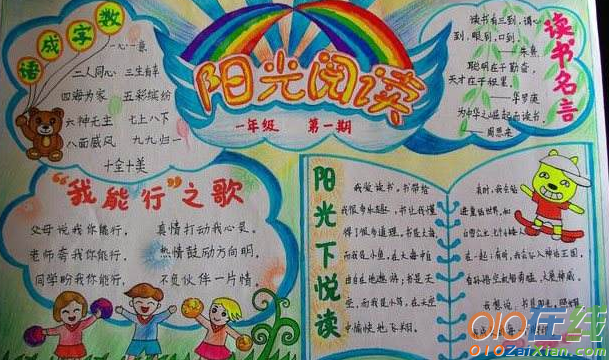 数字成语
一心一意
二人同心 三生有幸
四海为家 五彩缤纷
六神无主 七上八下
八面威风 九九归一
十全十美
阳光阅读
一年级 第一期
读书名言
读书有三到，谓心
到，眼到，口到。
——朱熹
聪明在于勤奋，
天才在于积累。
——华罗庚
为中华之崛起而读书
——周恩来
“我能行”之歌
父母说我你能行， 真情打动我心灵。
老师夸我你能行， 热情鼓励方向明。
同学盼我你能行， 不负伙伴一片情。
阳光下悦读
我爱读书，书带给
我很多乐趣，书让我懂
得了很多道理。书是大海
而我是小鱼，在大海中自
由自在地遨游；书是天
空，而我是小鸟，在天空
中愉快地飞翔。
有时，我会钻
进童话世界，和
白雪公主、七个小矮人
在一起；有时，我会
看孙悟空
我想说，书是阳光，照耀
010在线
010ZaiXian.com